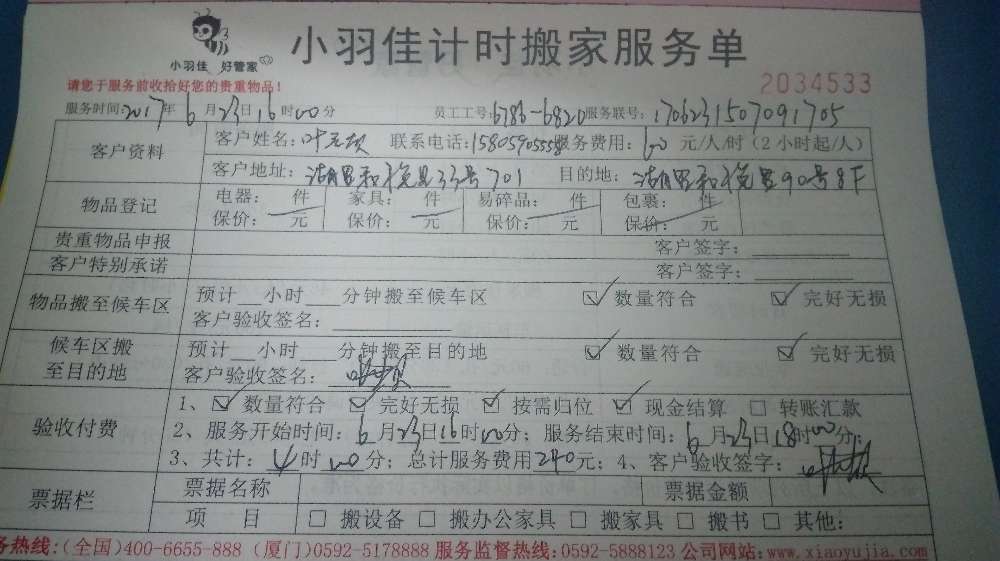 小羽佳 好管家
小羽佳计时搬家服务单
请您于服务前收拾好您的贵重物品!
2034533
服务时间:2017年6月23日16时00分 员工工号:6786-6820 服务联号:1706231507091705
客户资料
客户姓名: 联系电话:15805905558 服务费用:60元/人/时(2小时起/人)
客户地址:湖里和悦里33号701 目的地:湖里和悦里90号8F
物品登记
电器: 件 家具: 件 易碎品: 件 包裹: 件
保价: 元 保价: 元 保价: 元 保价: 元
贵重物品申报 客户签字:
客户特别承诺 客户签字:
物品搬至候车区
预计__小时___分钟搬至候车区 ☑数量符合 ☑完好无损
客户验收签名:
候车区搬至目的地
预计__小时___分钟搬至目的地 ☑数量符合 ☑完好无损
客户验收签名:
验收付费
1、☑数量符合 ☑完好无损 ☑按需归位 ☑现金结算 □转账汇款
2、服务开始时间:6月23日16时00分;服务结束时间:6月23日18时00分;
3、共计:4时00分;总计服务费用240元;4、客户验收签字:
票据栏
票据名称 票据金额
项 目 □搬设备 □搬办公家具 □搬家具 □搬书 □其他:
务热线:(全国)400-6655-888 (厦门)0592-5178888 服务监督热线:0592-5888123 公司网站:www.xiaoyujia.com